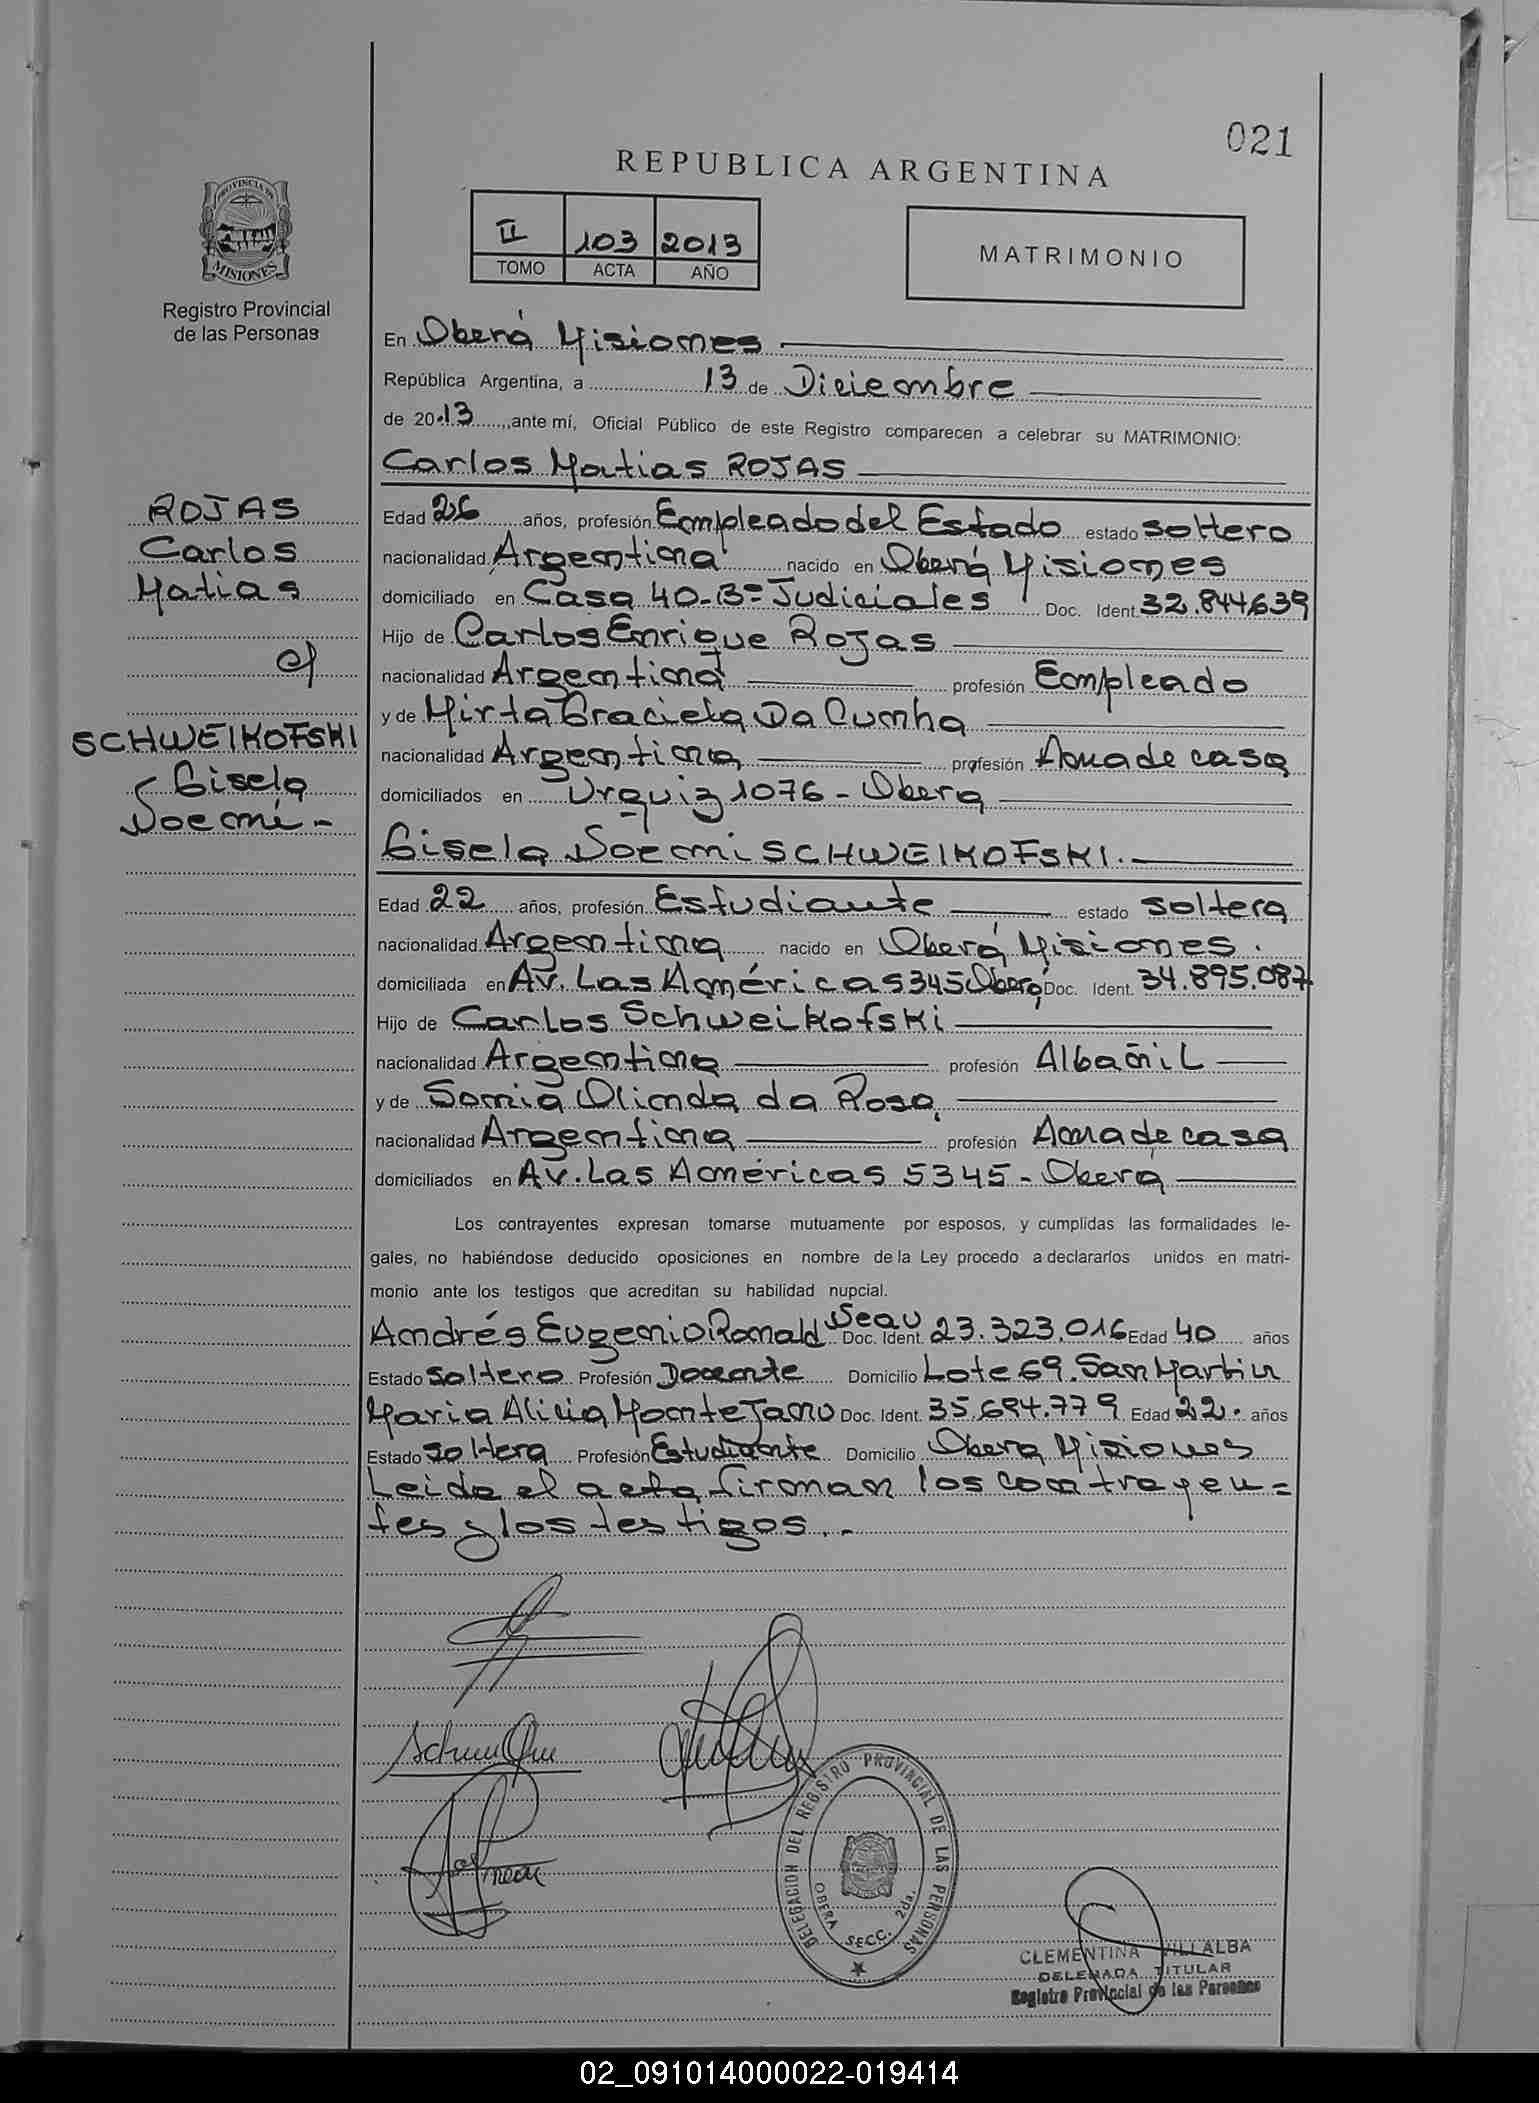 021
REPUBLICA ARGENTINA
PROVINCIA DE
MISIONES
Registro Provincial
de las Personas
II 103 2013
TOMO ACTA AÑO
MATRIMONIO
En Oberá Misiones
República Argentina, a 13 de Diciembre
de 2013, ante mí, Oficial Público de este Registro comparecen a celebrar su MATRIMONIO:
Carlos Matias ROJAS
ROJAS
Carlos
Matias
c/
SCHWEIKOFSKI
Gisela
Noemi -
Edad 26 años, profesión Empleado del Estado estado soltero
nacionalidad Argentina nacido en Oberá Misiones
domiciliado en Casa 40-Bº Judiciales Doc. Ident. 32.844.639
Hijo de Carlos Enrique Rojas
nacionalidad Argentina profesión Empleado
y de Mirta Graciela Da Cunha
nacionalidad Argentina profesión Ama de casa
domiciliados en Urquiza 1076 - Oberá
Gisela Noemi SCHWEIKOFSKI.
Edad 22 años, profesión Estudiante estado soltera
nacionalidad Argentina nacido en Oberá Misiones.
domiciliada en Av. Las Américas 5345 Oberá Doc. Ident. 34.895.087
Hijo de Carlos Schweikofski
nacionalidad Argentina profesión Albañil
y de Sonia Olinda da Rosa
nacionalidad Argentina profesión Ama de casa
domiciliados en Av. Las Américas 5345 - Oberá
Los contrayentes expresan tomarse mutuamente por esposos, y cumplidas las formalidades le-
gales, no habiéndose deducido oposiciones en nombre de la Ley procedo a declararlos unidos en matri-
monio ante los testigos que acreditan su habilidad nupcial.
Andrés Eugenio Ronald Doc. Ident. 23.323.016 Edad 40 años
Estado soltero Profesión Docente Domicilio Lote 69. San Martin
Maria Alicia Montejano Doc. Ident. 35.694.779 Edad 22. años
Estado soltera Profesión Estudiante Domicilio Obera Misiones
Leida el acta firman los contrayen=
tes y los testigos. -
DELEGACION DEL REGISTRO PROVINCIAL DE LAS PERSONAS
OBERA SECC. 2da.
CLEMENTINA VILLALBA
DELEGADA TITULAR
Registro Provincial de las Personas
02_091014000022-019414